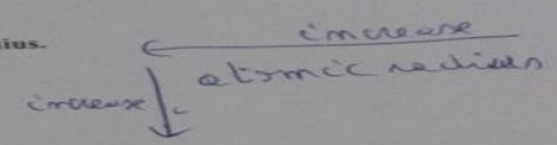 ius.
increase
atomic radius
increase